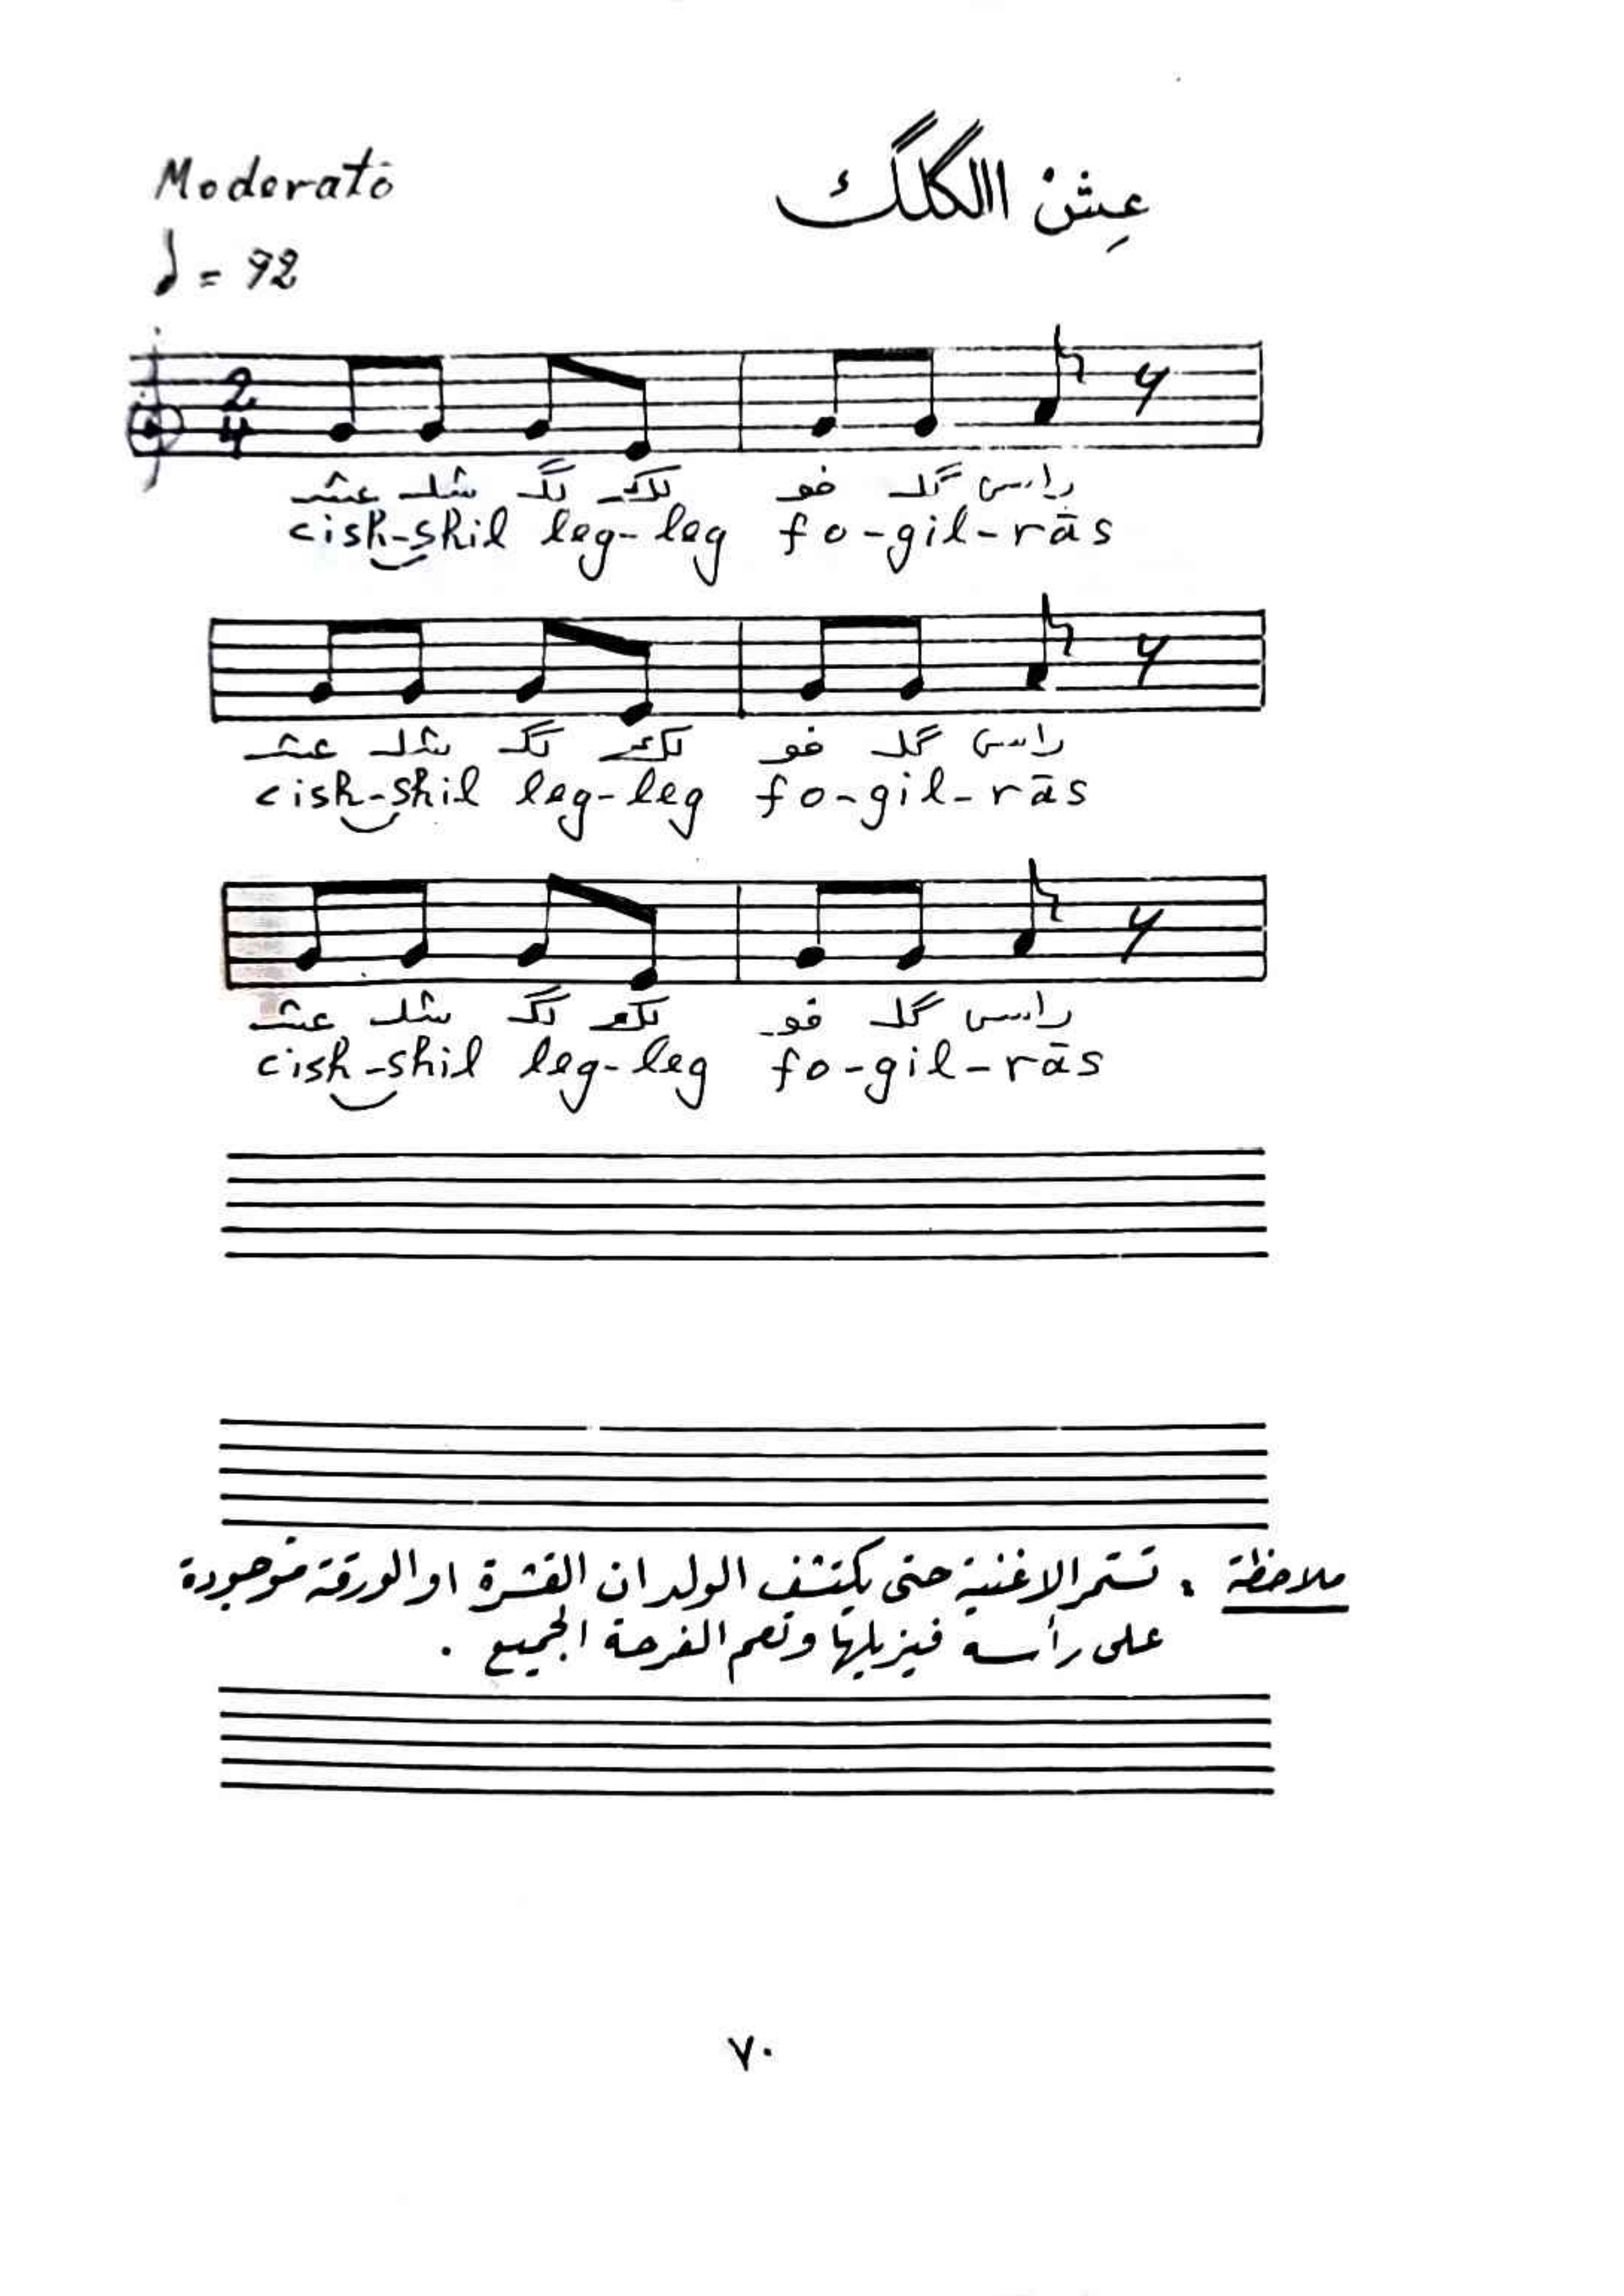 عِشْ اللگلگ
Moderato
♩ = 92
2
4
عشـ شلـ لگـ لگ فو گلـ راس
cish-shil leg-leg fo-gil-rās
عشـ شلـ لگـ لگ فو گلـ راس
cish-shil leg-leg fo-gil-rās
عشـ شلـ لگـ لگ فو گلـ راس
cish-shil leg-leg fo-gil-rās
ملاحظة : تستمر الاغنية حتى يكتشف الولد ان القشرة او الورقة موجودة
على رأسه فيزيلها وتعم الفرحة الجميع .
٧٠